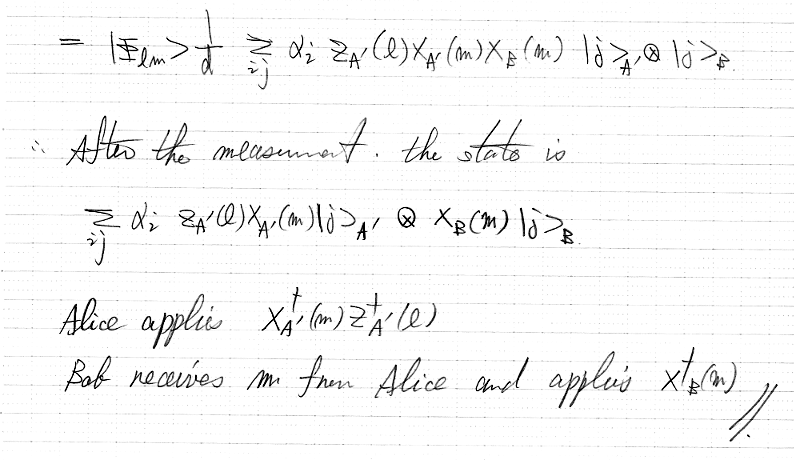 = |Φ_{lm}> 1/d Σ_{ij} α_i Z_{A'}(l) X_{A'}(m) X_B(m) |j>_{A'} ⊗ |j>_B.
∴ After the measurement. the state is
Σ_{ij} α_i Z_{A'}(l) X_{A'}(m) |j>_{A'} ⊗ X_B(m) |j>_B.
Alice applies X†_{A'}(m) Z†_{A'}(l)
Bob receives m from Alice and applies X†_B(m) //